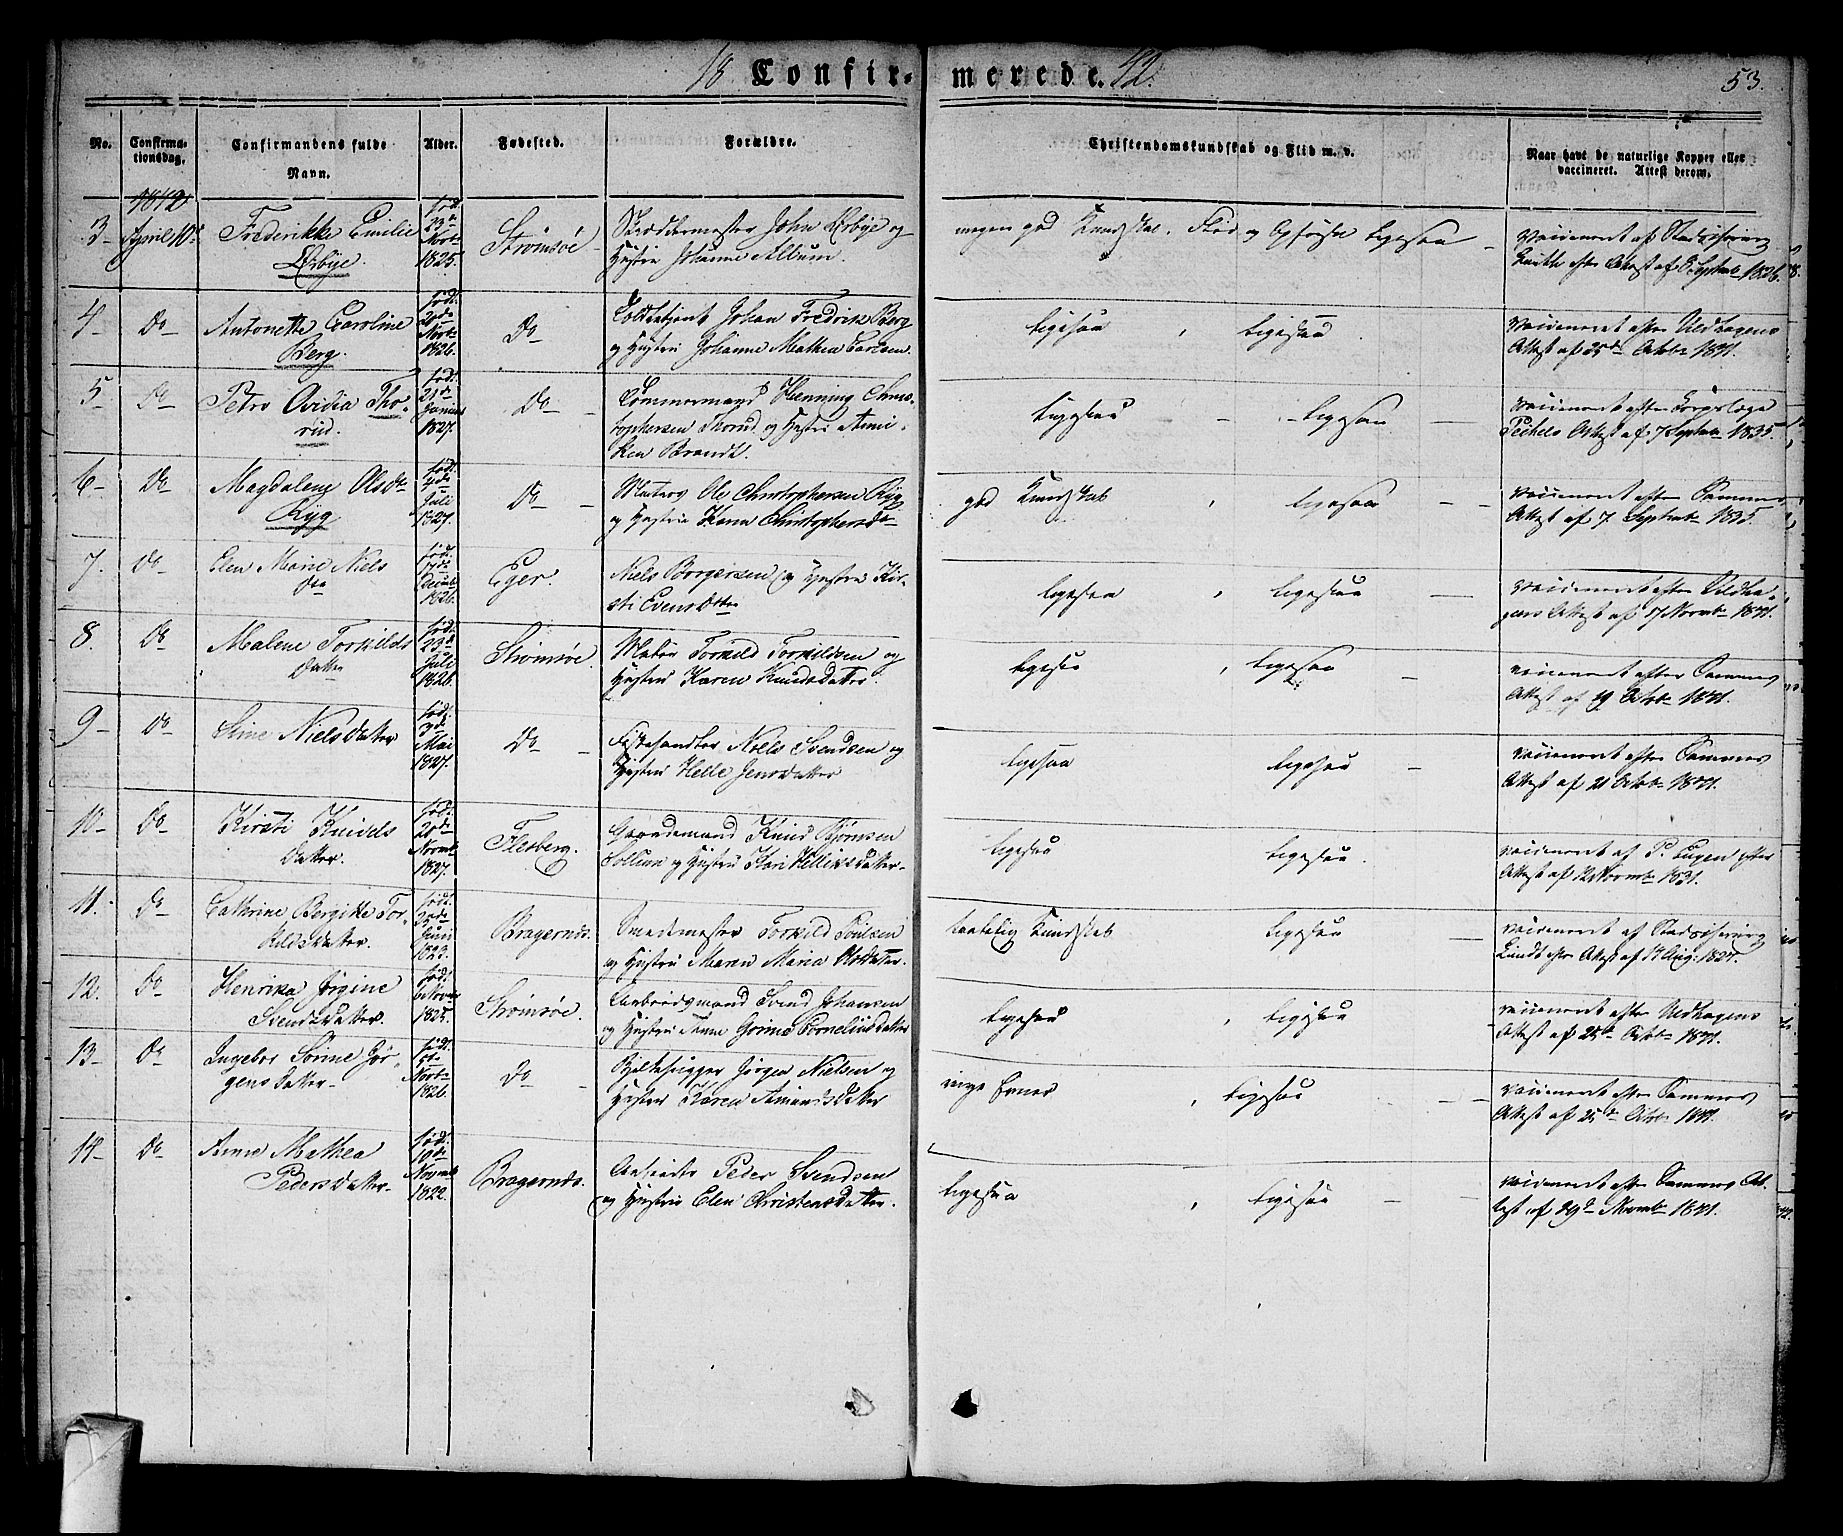 18 Confir- merede. 42.
53.
No.
Confirma-
tionsdag.
Confirmandens fulde
Navn.
Alder.
Fødested.
Forældre.
Christendomskundskab og Flid m. v.
Naar havt de naturlige Kopper eller
vaccineret. Attest derom.
1842
3- April 10 Frederikke Emilie
Ørbye.
fød
23
1825.
Strømsøe
John Ørbye og
Hustru Johanne Album.
megen god Kundskab. Flid og Opførsel ligesaa
vaccineret af
Attest af Septemb 1826.
4- Do Antonette Caroline
Berg.
født
1826.
Do
Johan Fredrik Berg
og Hustru Johanne Mathea Carlsen.
ligesaa ligesaa
vaccineret efter Uldhagens
Attest af 25de Octob 1841.
5- Do Petra Ovidia Tho-
rud.
fød.
21de
Junius
1827.
Do
Tømmermand Henning Chris-
tophersen Thorud og Hustru Anni-
ken Brandt.
ligesaa ligesaa
vaccineret efter Corpslæge
Attest af 7 Septemb 1835.
6- Do Magdalene Olsdr
Ryg
født
4de
Juli
1827.
Do
Matros Ole Christophersen Ryg
og Hustru Karen Christophersdr
god Kundskab ligesaa
vaccineret efter Sammes
Attest af 7. Septemb 1835.
7. Do Elen Marie Niels
dtr
født.
17de
Decemb
1826.
Eger.
Niels Borgersen og Hustru Kir-
sti Evensdtter
ligesaa ligesaa
vaccineret efter Uldha-
gens Attest af 17 Novemb 1841.
8. Do Malene Torkilds
Datter
fød.
23d
Juli
1826.
Strømsøe.
Torkild Torkildsen og
Hustru Karen Knudsdatter.
ligesaa ligesaa
vaccineret efter Sammes
Attest af 19 Octob 1841.
9- Do Stine Nielsdatter
født.
3de
Mai
1827.
Do
Niels Svendsen og
Hustru Helle Jensdatter
ligesaa ligesaa
vaccineret efter Sammes
Attest af 21 Octob 1841.
10- Do Kirsti Knuds
Datter.
fød.
20de
Novemb
1827.
Flesberg.
Gaardmand Knud Bjørnsen
og Hustru Kari Helliksdatter-
ligesaa ligesaa
vaccineret af P. Eugen efter
Attest af 12 Novemb 1831.
11. Do Cathrine Bergitte Tor-
kildsdatter.
født.
Juni
Bragernæs.
Smedmester Torkild Poulsen
og Hustru Maren Maria Olsdatter.
taalelig Kundskab ligesaa
vaccineret af
Lundt efter Attest af Aug: 1827.
12. Do Henrika Jørgine
Svendsdatter.
fød.
1825.
Strømsøe.
Arbeidsmand Svend Johansen
og Hustru Anne Corneliusdatter
ligesaa ligesaa
vaccineret efter Uldhagens
Attest af 25de Octob 1841.
13- Do Ingebor Sørine Jør-
gensdatter-
født.
1826.
Do
Jørgen Nielsen og
Hustru Karen Amundsdatter
ligesaa
vaccineret efter Sammes
Attest af 25de Octob 1841.
14- Do Anne Mathea
Pedersdatter-
fød.
19de
Novemb
1822.
Bragernæs.
Peder Svendsen
og Hustru Elen Christensdatter.
ligesaa ligesaa
vaccineret efter Sammes At-
test af 29de Novemb 1841.